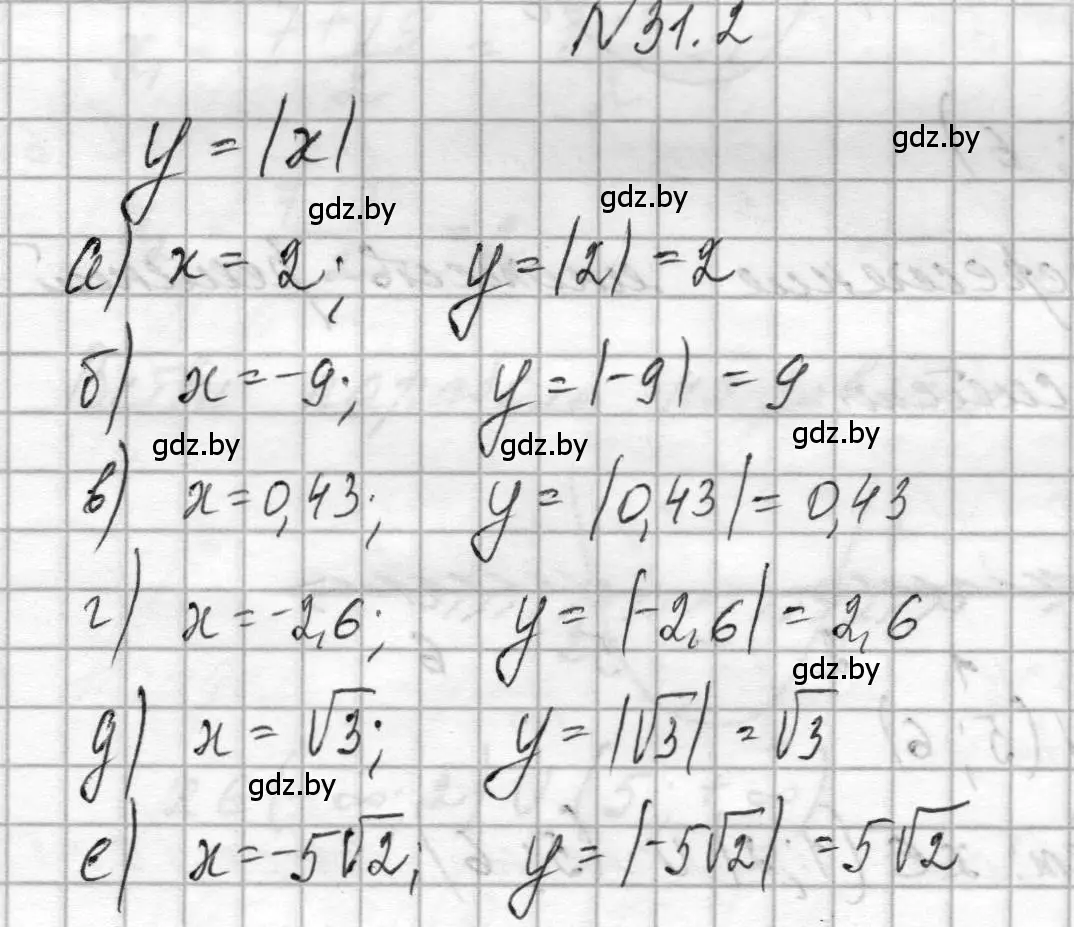 N 31.2
y = |x|
gdz.by
gdz.by
gdz.by
а) x = 2; y = |2| = 2
б) x = -9; y = |-9| = 9
gdz.by
gdz.by
gdz.by
в) x = 0,43; y = |0,43| = 0,43
г) x = -2,6; y = |-2,6| = 2,6
gdz.by
д) x = √3; y = |√3| = √3
gdz.by
е) x = -5√2; y = |-5√2| = 5√2